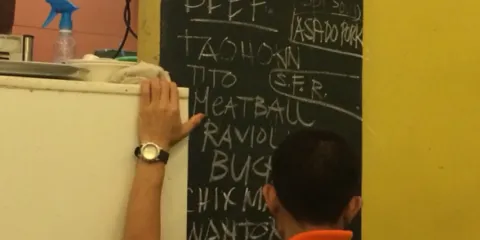 BEEF.
ASADO PORK
TAOHONN
TITO
S.F.R.
MEATBALL
RAVIOLI
BUC
CHIX MA
WANTON